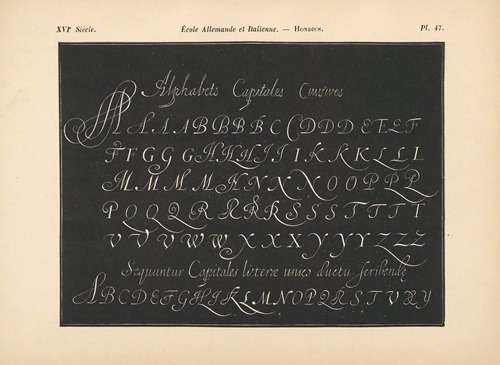 XVIe Siècle. École Allemande et Italienne. — Hondius. Pl. 47.
Alphabets Capitales Cursives
A A A A B B B B C C D D D E E F
F F G G G H H H I I K K K L L L
M M M M M N N N N O O P P P
P Q Q Q R R R R S S S T T T T I
V V V V W W X X X X Y Y Y Z Z Z
Sequuntur Capitales litteræ unico ductu scribendæ
A B C D E F G H I K L M N O P Q R S T V X Y